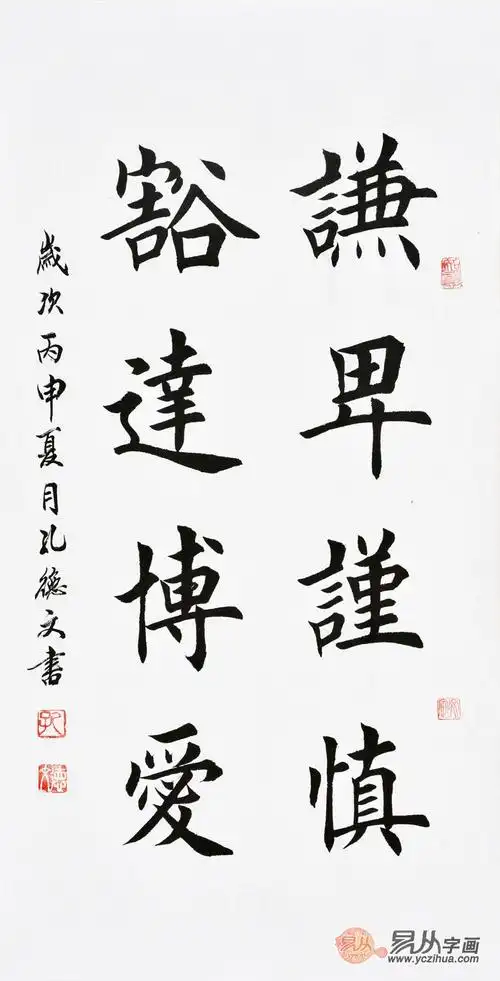 謙卑謹慎
豁達博愛
歲次丙申夏月孔德文書
易从字画
www.yczihua.com